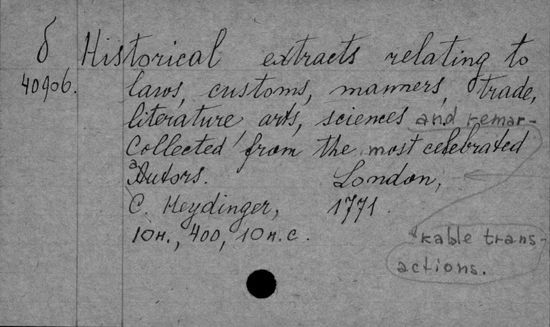 б Historical extracts relating to
40906. laws, customs, manners, trade,
literature, arts, sciences and remar-
Collected from the most celebrated
Autors. London,
C. Heydinger, 1771.
10н., 400, 10н.с.
kable trans-
actions.